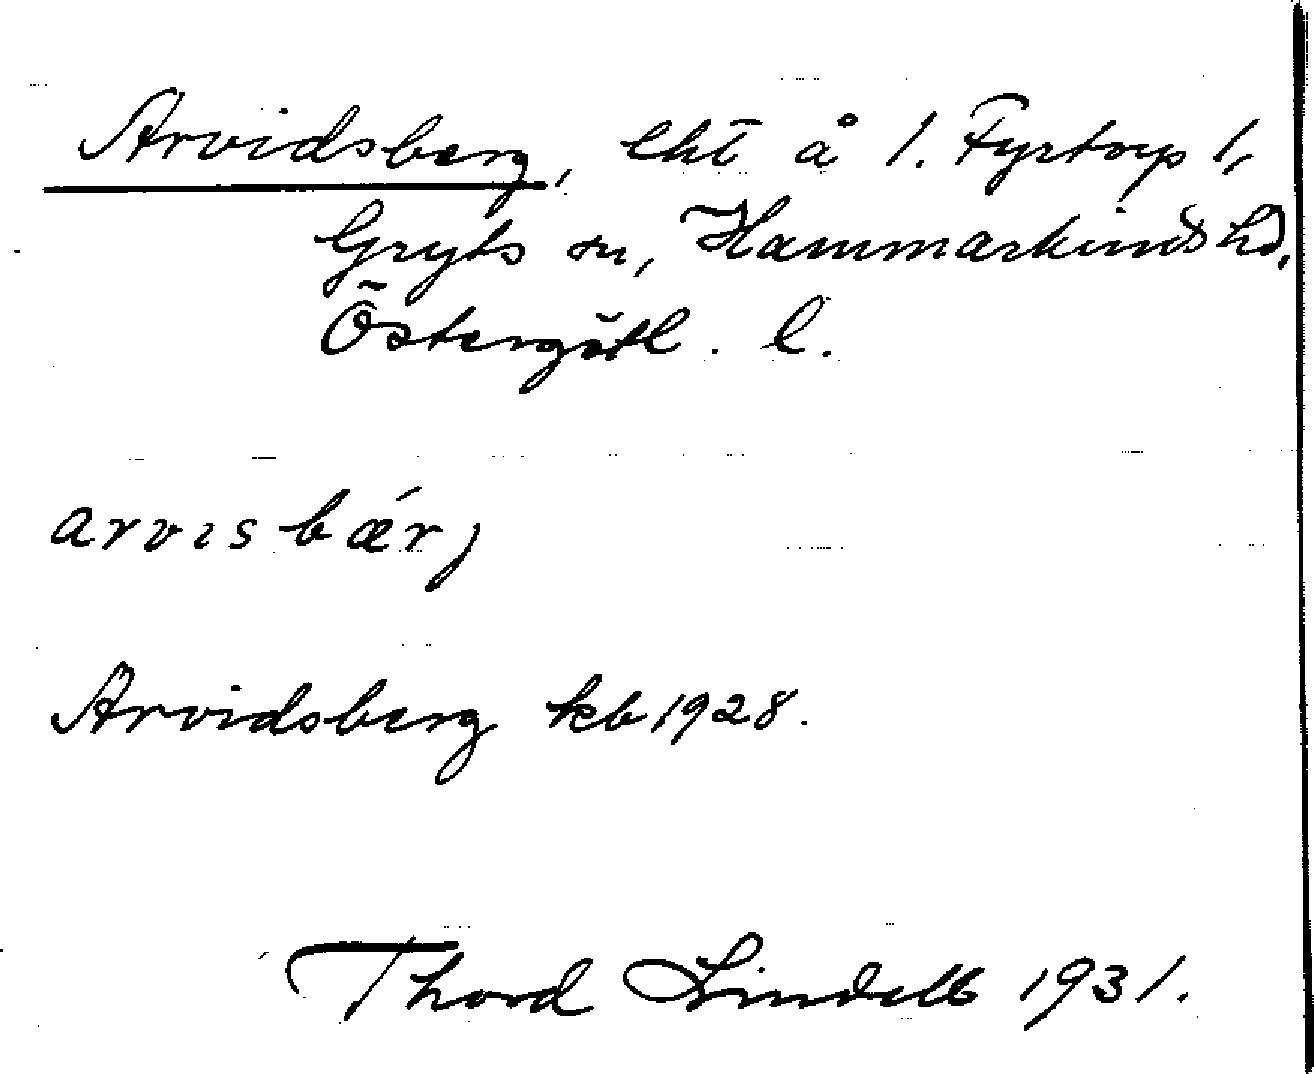 Arvidsberg, lht å 1. Fyrtorp 1,
Gryts sn, Hammarkinds hd,
Östergötl. l.
arvisbǽrj
Arvidsberg kb 1928.
Thord Lindell 1931.